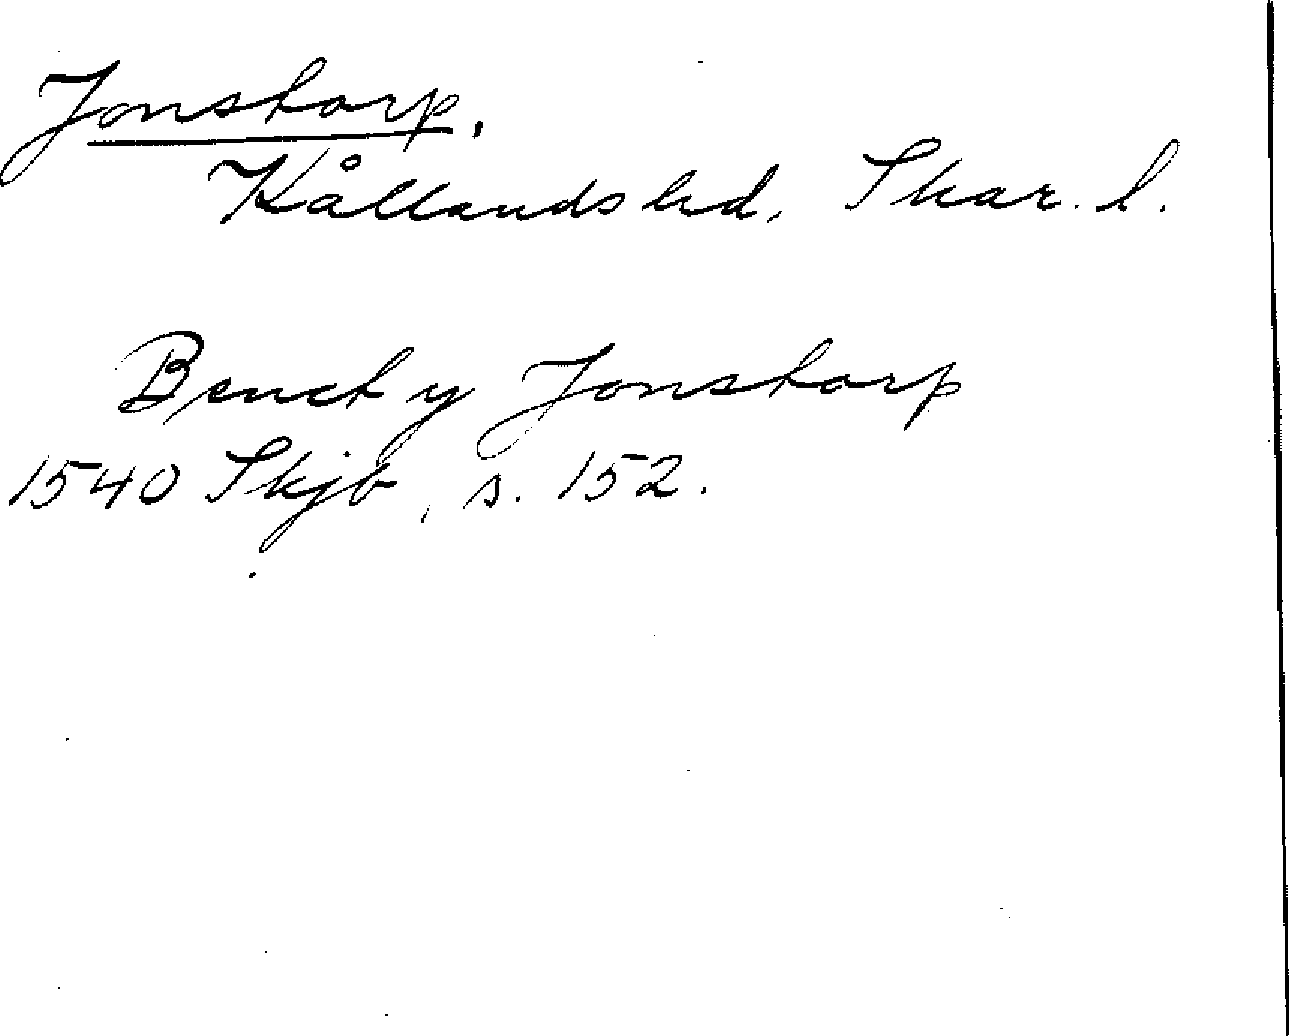 Jonstorp.
Kållands hd, Skar. l.
Benct y Jonstorp
1540 Skjb, s. 152.